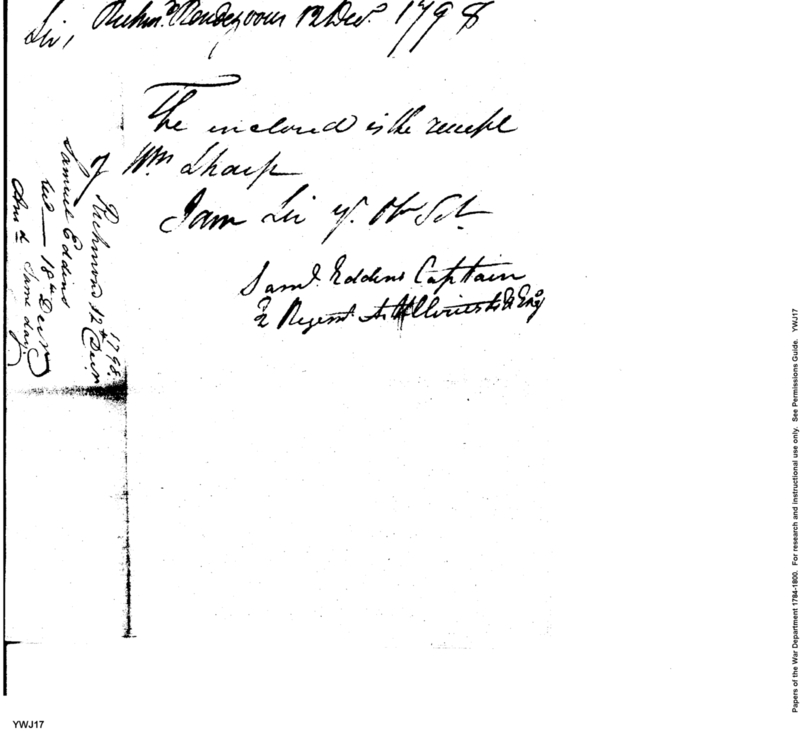 Richmd. Rendezvous 12 Decr. 1798
Sir,
The enclosed is the receipt
of Wm Sharp
I am Sir yr. Ob Sert.
Saml. Eddins Captain
2 Regemt Artillerists & Engrs
Richmond 12th Decr. 1798.
Samuel Eddins
recd — 18th Decr
Ansd same day.
YWJ17
Papers of the War Department 1784-1800. For research and instructional use only. See Permissions Guide. YWJ17